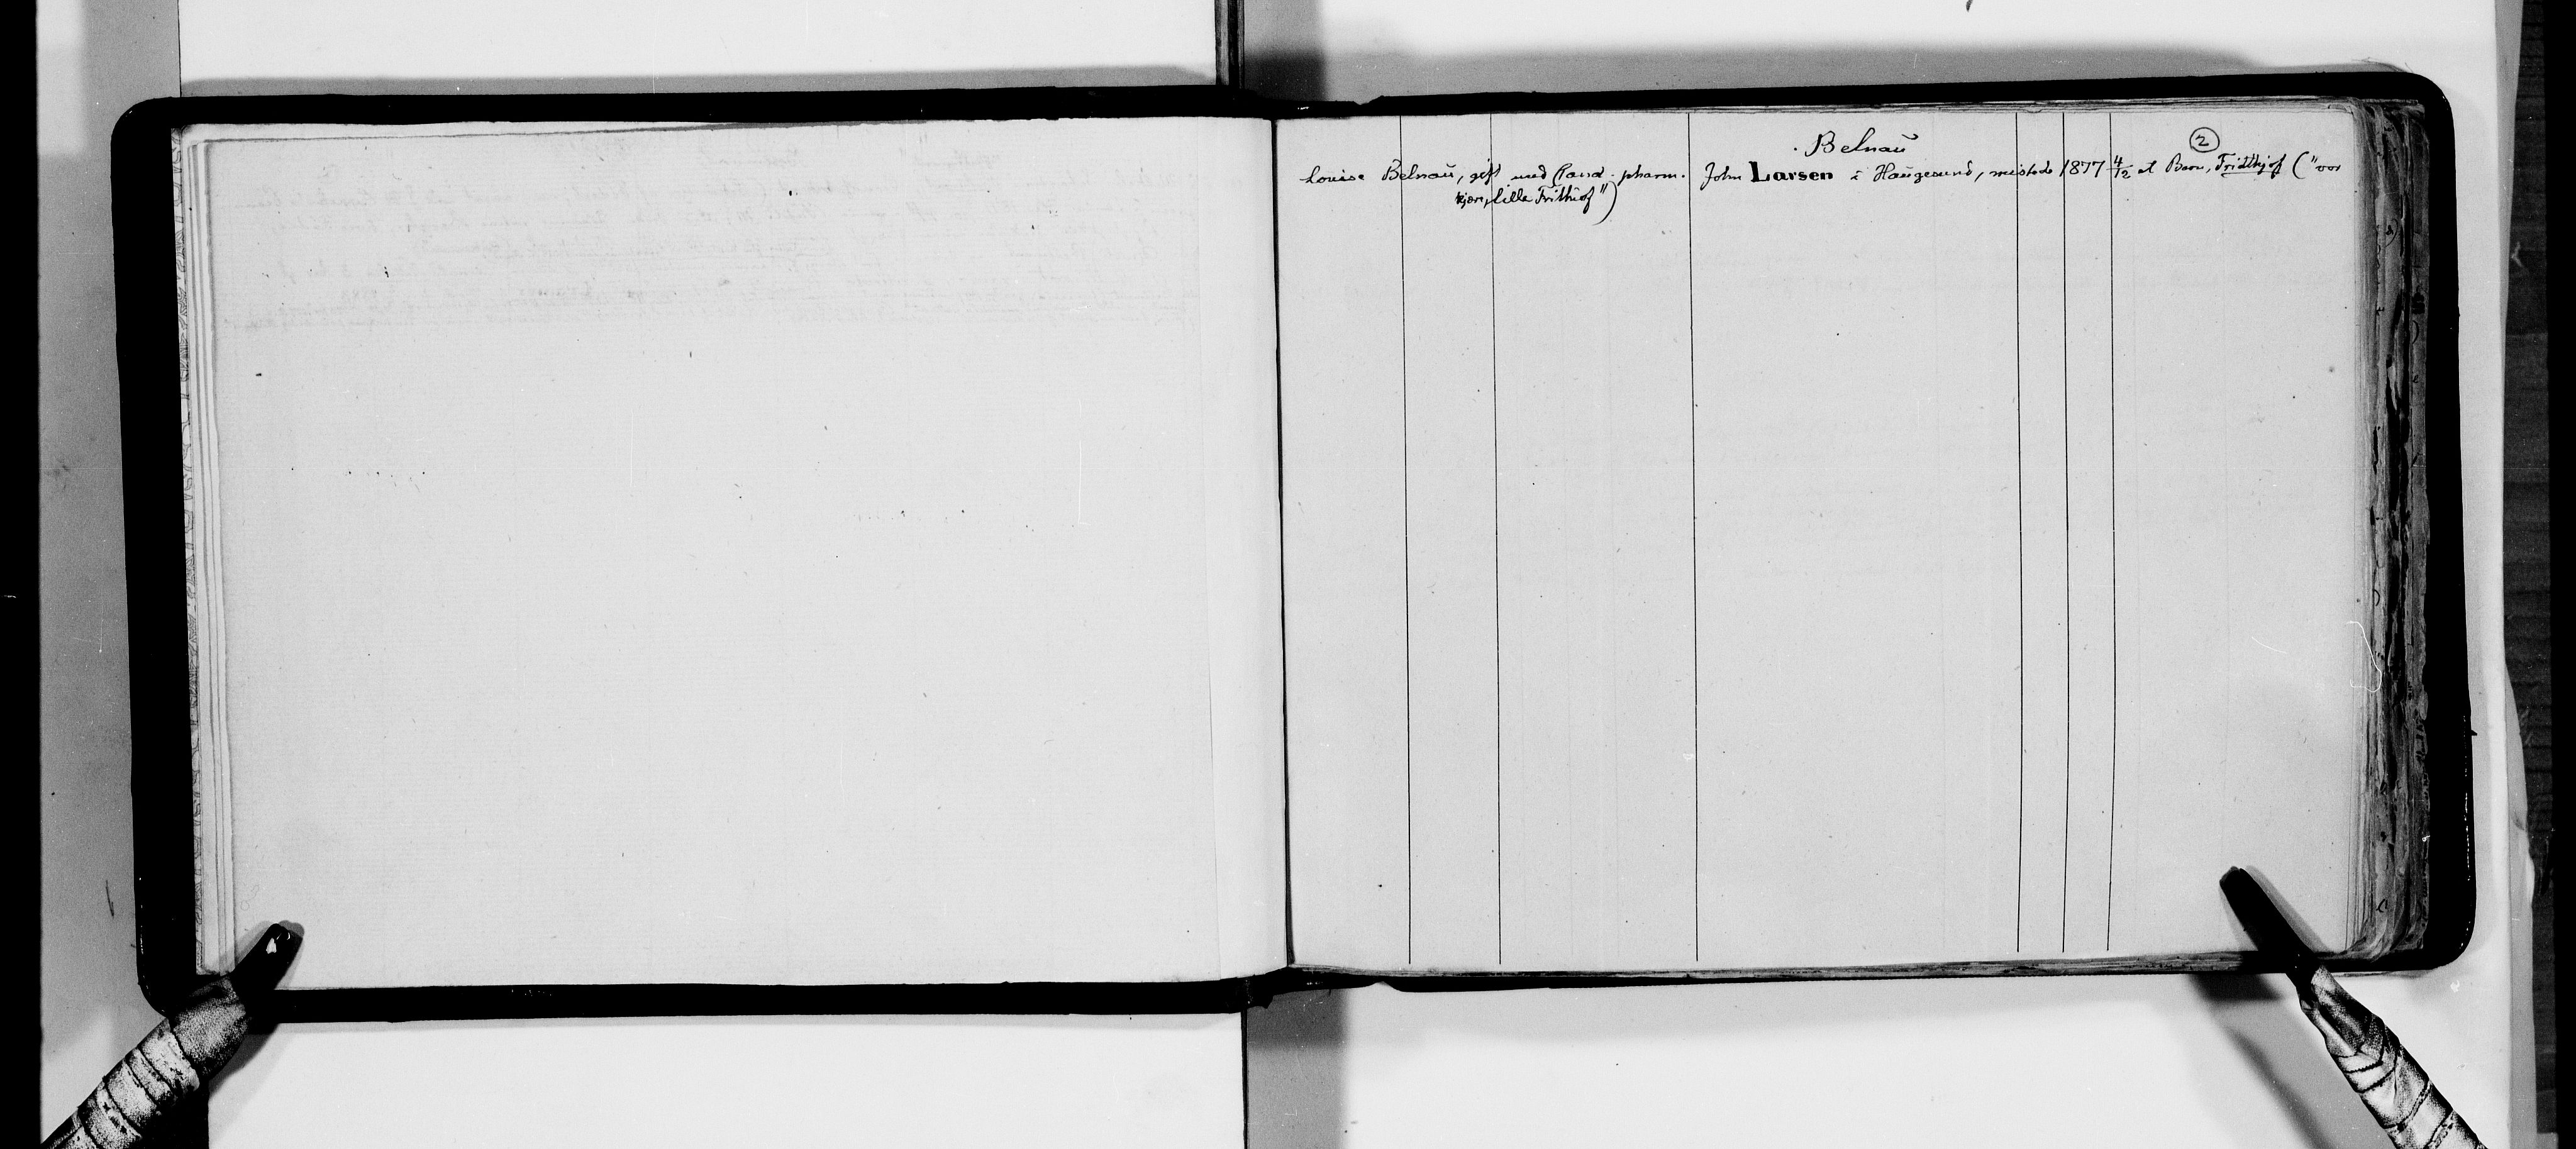 Belnaŭ
②
Louise Belnaŭ, gift med Cand. pharm. John Larsen i Haŭgesund, mistede 1877 4/12 et Barn, Fridthjof ("vor
kjære, lille Frithiof")